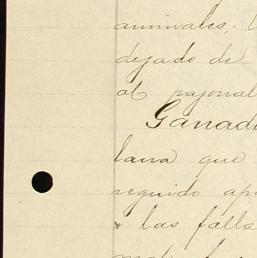 animales.
dejado de
al pajonal
Ganad
lana que
seguido ap
* las falla